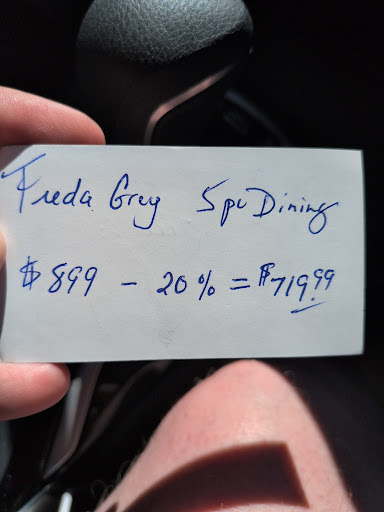 Freda Grey 5pc Dining
$899 - 20% = $719.99